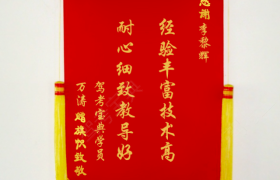 感谢 李黎辉
经验丰富技术高
耐心细致教导好
驾考宝典学员
万涛 赠旗帜致敬